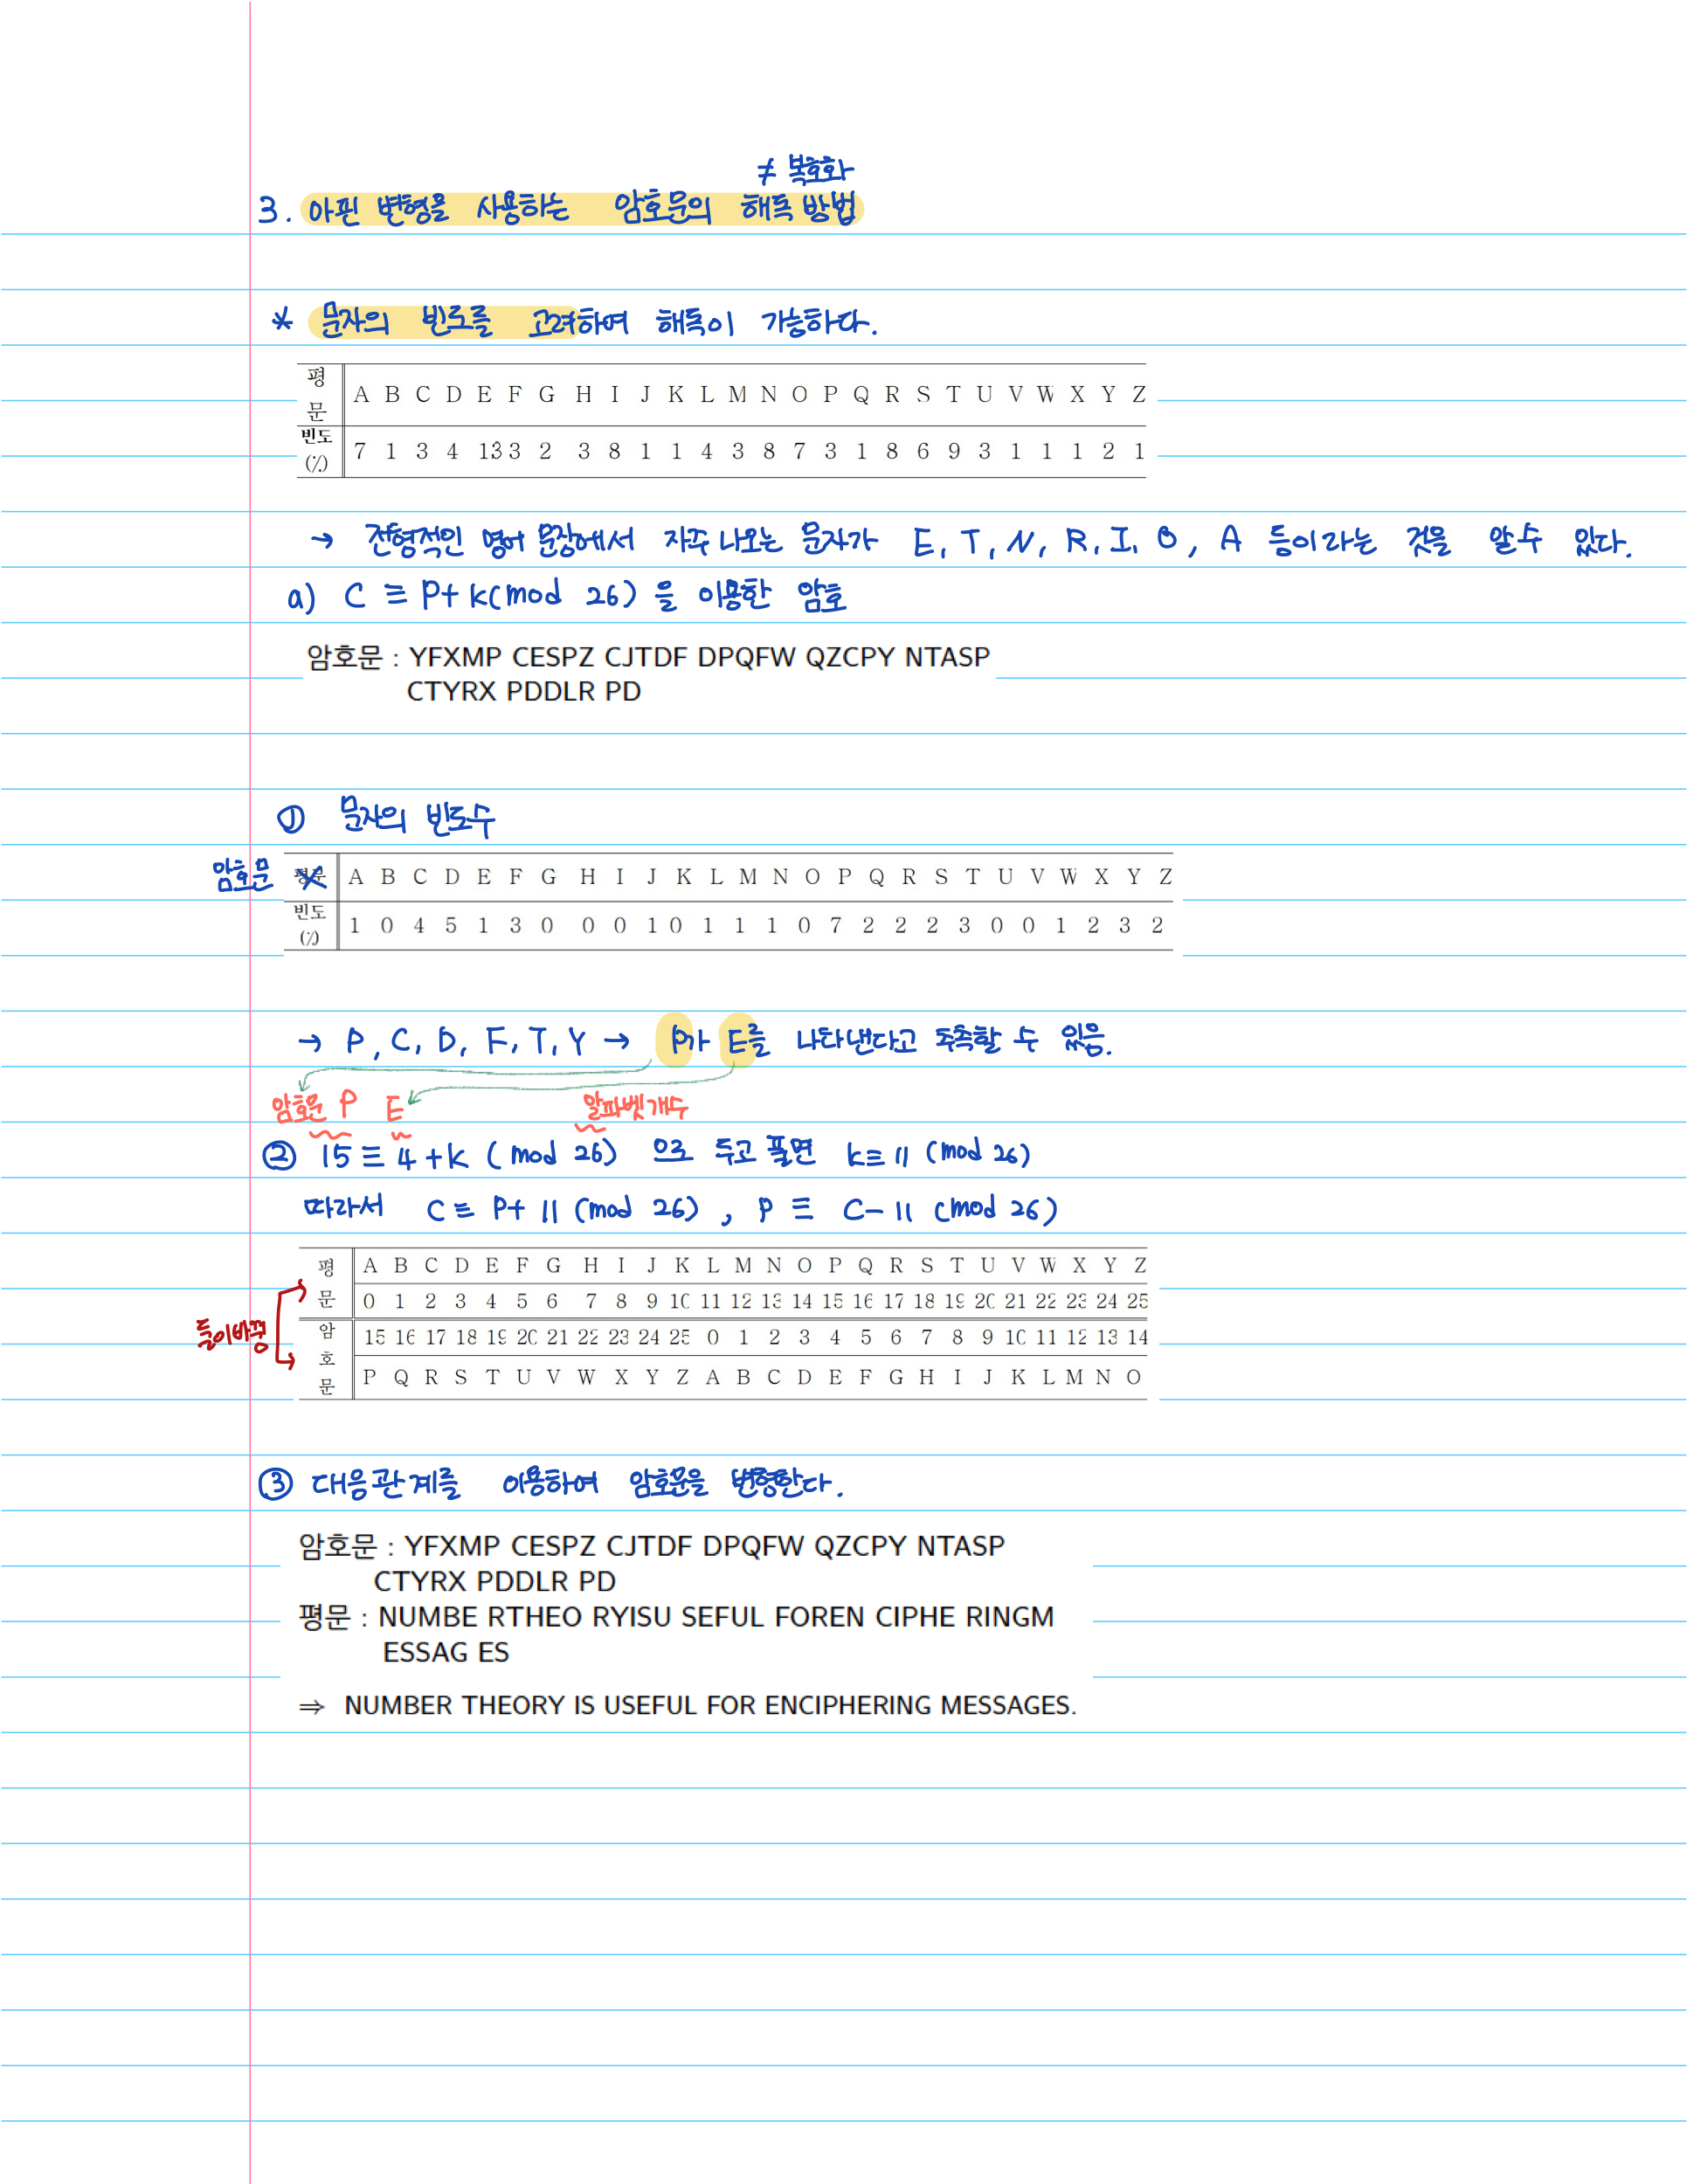 ≠ 복호화
3. 아핀 변형을 사용하는 암호문의 해독 방법
* 문자의 빈도를 고려하여 해독이 가능하다.
평문 A B C D E F G H I J K L M N O P Q R S T U V W X Y Z
빈도(%) 7 1 3 4 13 3 2 3 8 1 1 4 3 8 7 3 1 8 6 9 3 1 1 1 2 1
→ 전형적인 영어 문장에서 자주 나오는 문자가 E, T, N, R, I, O, A 등이라는 것을 알 수 있다.
a) C ≡ P+k(mod 26)을 이용한 암호
암호문 : YFXMP CESPZ CJTDF DPQFW QZCPY NTASP
CTYRX PDDLR PD
① 문자의 빈도수
암호문 평문 A B C D E F G H I J K L M N O P Q R S T U V W X Y Z
빈도(%) 1 0 4 5 1 3 0 0 0 1 0 1 1 1 0 7 2 2 2 3 0 0 1 2 3 2
→ P, C, D, F, T, Y → P가 E를 나타낸다고 추측할 수 있음.
암호문 P E 알파벳 개수
② 15 ≡ 4+k (mod 26) 으로 두고 풀면 k≡11 (mod 26)
따라서 C ≡ P+11 (mod 26), P ≡ C-11 (mod 26)
평문 A B C D E F G H I J K L M N O P Q R S T U V W X Y Z
0 1 2 3 4 5 6 7 8 9 10 11 12 13 14 15 16 17 18 19 20 21 22 23 24 25
둘이바뀜
암호문 15 16 17 18 19 20 21 22 23 24 25 0 1 2 3 4 5 6 7 8 9 10 11 12 13 14
P Q R S T U V W X Y Z A B C D E F G H I J K L M N O
③ 대응관계를 이용하여 암호문을 변형한다.
암호문 : YFXMP CESPZ CJTDF DPQFW QZCPY NTASP
CTYRX PDDLR PD
평문 : NUMBE RTHEO RYISU SEFUL FOREN CIPHE RINGM
ESSAG ES
⇒ NUMBER THEORY IS USEFUL FOR ENCIPHERING MESSAGES.